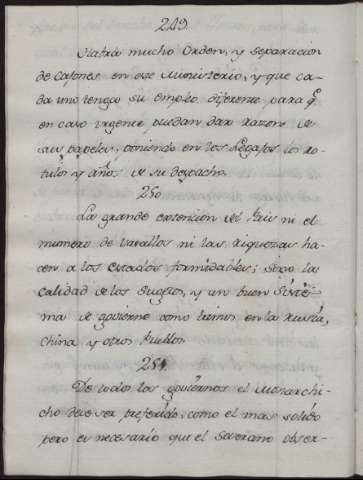 249.
Habrá mucho orden, y separacion
de caxones en ese Ministerio, y que ca-
da uno tenga su empleo diferente para q.e
en caso urgente puedan dar razon de
sus papeles, poniendo en los Legajos los ro-
tulos y años de su despacho.
250
La grande extencion del Pais ni el
numero de vasallos ni las riquezas ha-
cen a los estados formidables; sino la
calidad de los Sugetos, y un buen Siste-
ma de govierno como vemos en la Rusia,
china y otros Pueblos
251.
De todos los goviernos el Monarchi-
cho deve ser preferido, como el mas solido
pero es necesario que el Soverano obser-